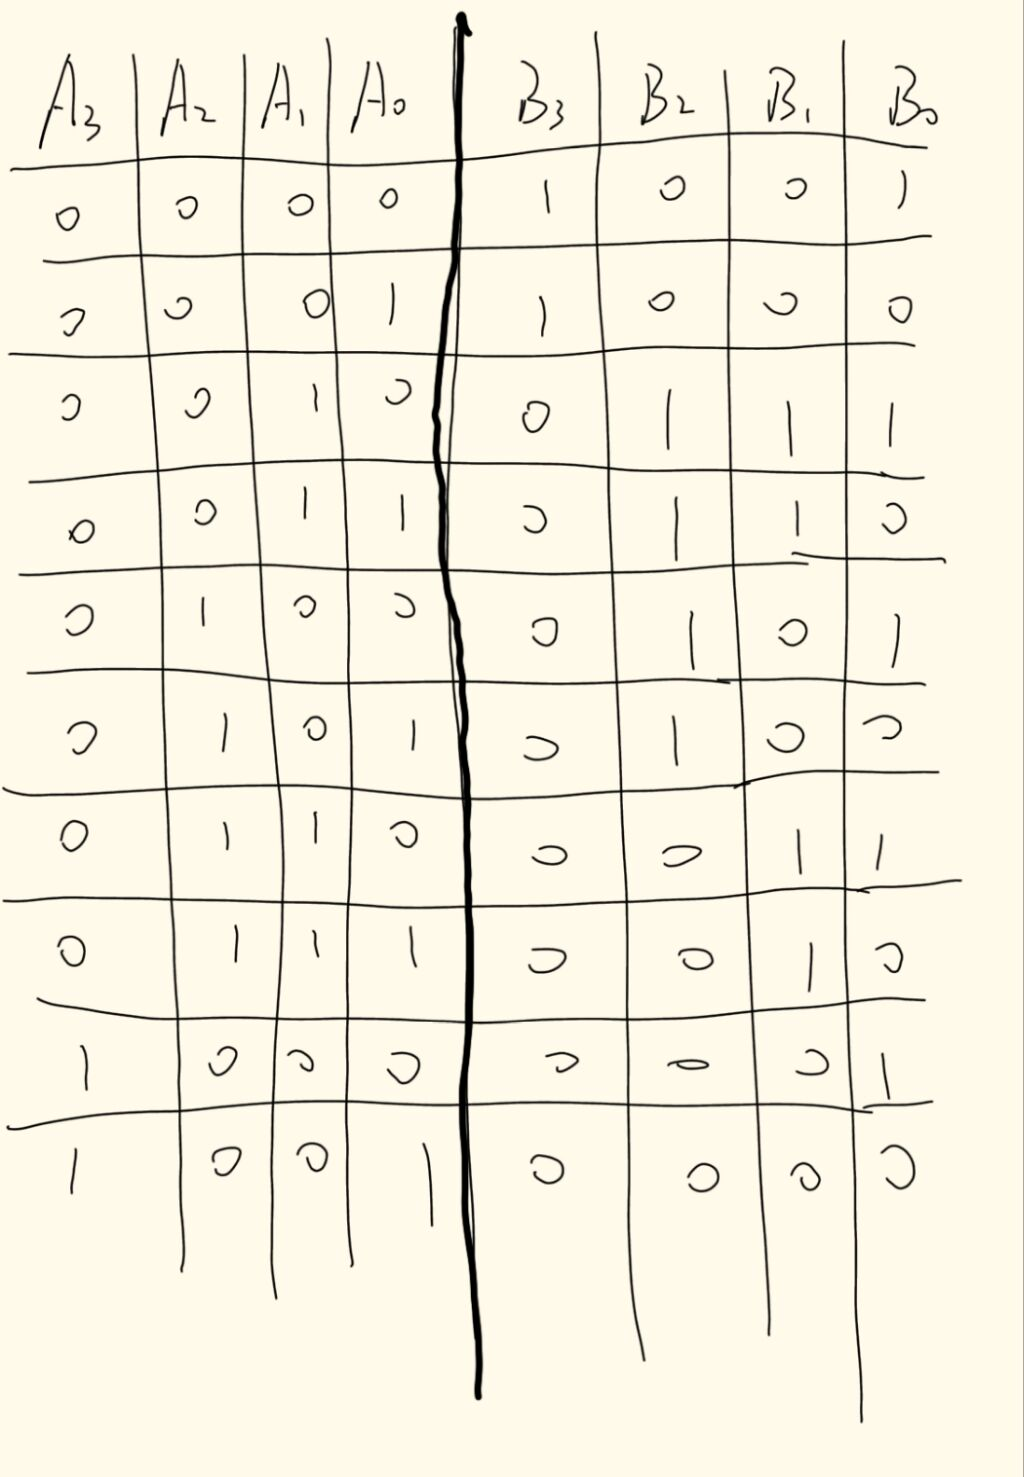 A₃ A₂ A₁ A₀ B₃ B₂ B₁ B₀
0 0 0 0 1 0 0 1
0 0 0 1 1 0 0 0
0 0 1 0 0 1 1 1
0 0 1 1 0 1 1 0
0 1 0 0 0 1 0 1
0 1 0 1 0 1 0 0
0 1 1 0 0 0 1 1
0 1 1 1 0 0 1 0
1 0 0 0 0 0 0 1
1 0 0 1 0 0 0 0